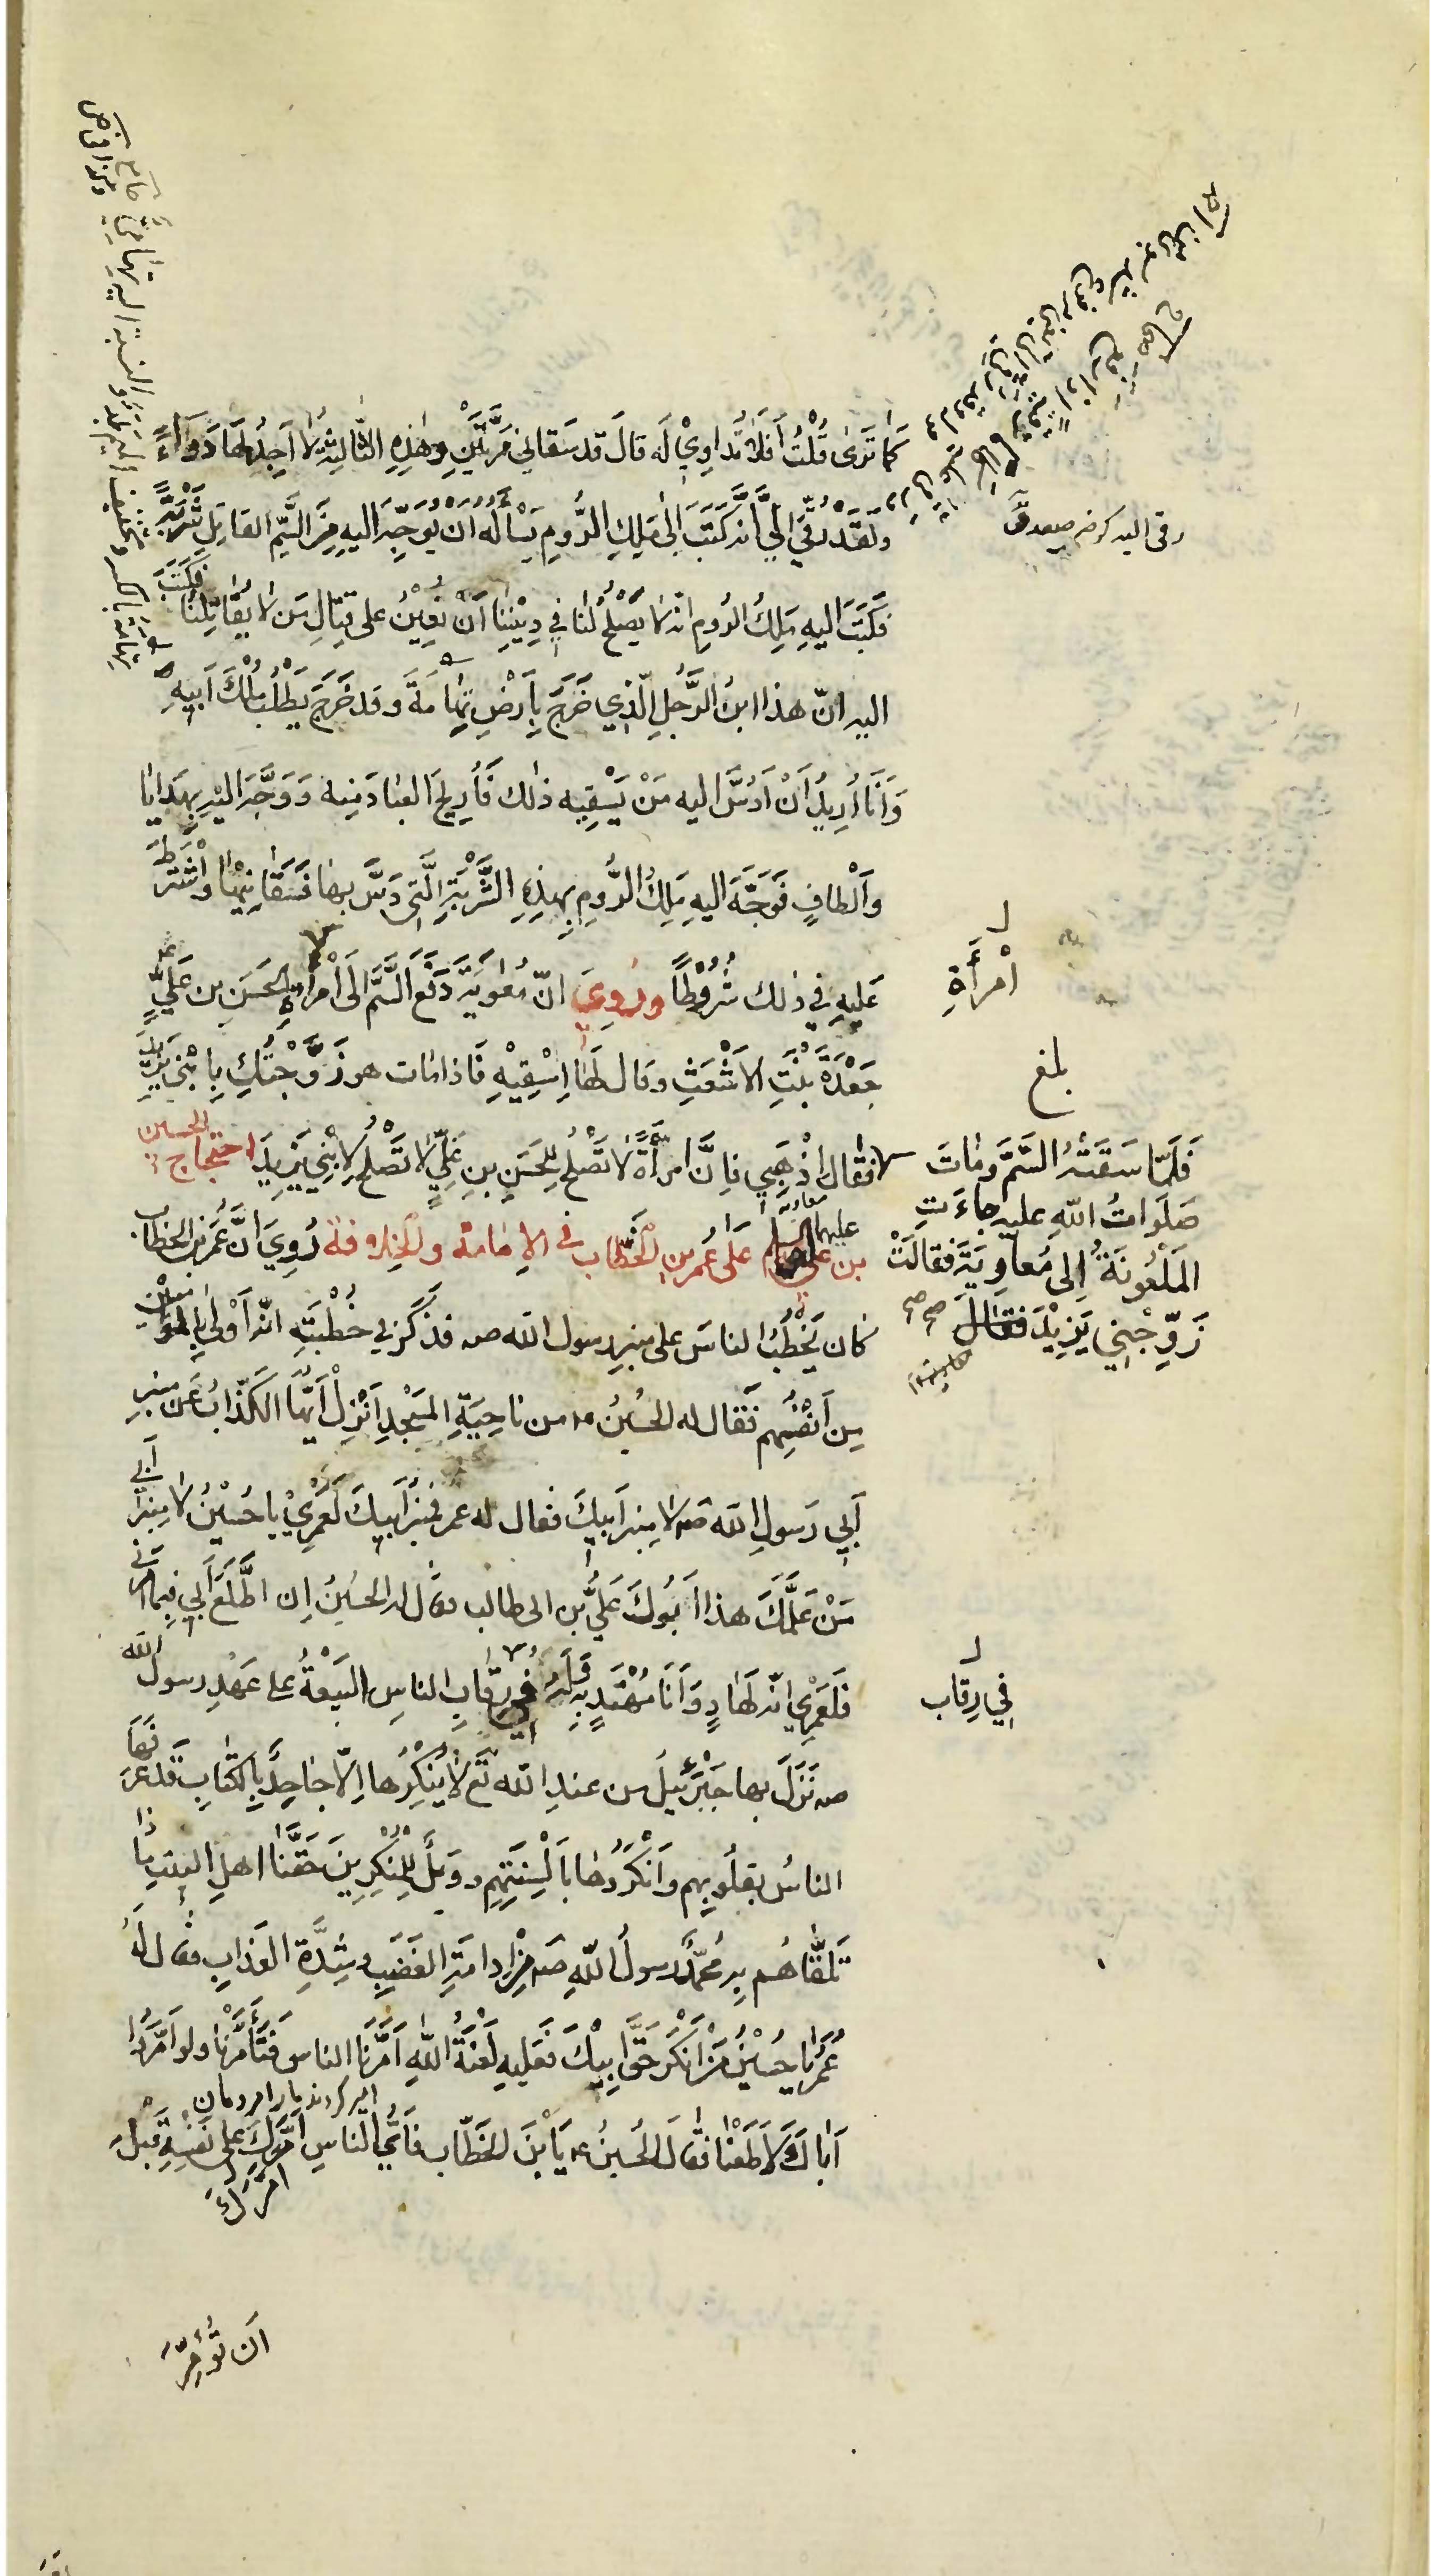 كَما تَرىٰ قُلْتُ أَفَلا تَداوِيْ لَه قالَ قد سَقاني مَرَّتَيْنِ وهٰذِهِ الثّالِثةُ لا اَجِدُ لَها دَواءً
وَلَقَدْ رُقَيَ اِلَيَّ اَنَّه كَتَبَ اِلىٰ مَلِكِ الرُّومِ يَسْأَلُهُ اَنْ يُوَجِّهَ اليهِ مِنَ السَّمِّ القاتِلِ شَرْبَةً
فَكَتَبَ اليهِ مَلِكُ الرُومِ انّه لا يَصْلُحُ لَنا في دِيْنِنا اَنْ نُعِيْنَ على قِتالِ مَن لا يُقاتِلُنا فَكَتَبَ
اليه انّ هذا ابنُ الرَّجُلِ الّذِي خَرَجَ بِاَرْضِ تِهامَةَ وقَد خَرَجَ يَطْلُبُ مُلْكَ اَبيهِ
وَاَنَا اُرِيدُ اَنْ اَدُسَّ اليه مَنْ يَسْقِيه ذٰلك فَاُرِيحَ العِبادَ مِنه وَوَجَّهَ اليْهِ بِهَدايا
واَلْطافٍ فَوَجَّهَ اليهِ مَلِكُ الرُّومِ بِهذِهِ الشَّرْبَةِ الَّتِي دَسَّ بِها فَسَقانيْها واشْتَرَطَ
عَليهِ في ذلك شُرُوْطاً ورُوِيَ انّ مُعٰوِيَةَ دَفَعَ السَّمَّ اِلَى امْرأةِ الحَسَنِ بن عَليٍّ
امْرأَةِ
جَعْدَةَ بِنْتِ الاَشْعَثِ وقال لَها اِسْقِيْهِ فَاذا مات هو زَوَّجْتُكِ بِابْني يَزِيْدَ
بلغ
فَلَمّا سَقَتْهُ السَّمَّ ومٰاتَ
صَلَواتُ اللهِ عليهِ جاءَتِ
المَلْعُونَةُ اِلى مُعاوِيَةَ فقالَتْ
زَوِّجْنِي يَزِيْدَ فقالَ صح صح
فقال اذْهَبِي فاِنَّ امرأةً لا تَصْلُحُ لِلحَسَنِ بنِ عَليٍّ لا تَصْلُحُ لِابْنِي يَزِيدَ احتجاج الحسين
بن علي عليهما السلام عَلى عُمر بن الخطّاب في الاِمامَة والخِلافَة رُوِيَ انَّ عُمَرَ بن الخطّاب
كان يَخْطُبُ الناسَ على منبرِ رسول الله صہ فذَكَرَ في خُطْبَتِهِ انّه اَوْلىٰ بِالمُؤمِنِينَ
مِن اَنْفُسِهِم فَقال له الحُسَيْنُ ۴ من ناحِيَةِ المَسْجِدِ اَنْزِلْ اَيُّها الكَذّابُ عَن مِنبرِ
اَبِي رَسولِ الله صہ لا مِنبرِ اَبيكَ فقال له عمر فمنبرُ اَبيكَ لَعَمْرِيْ يا حُسَيْنُ لا مِنبرُ اَبي
مَنْ عَلَّمَكَ هذا اَبُوكَ عَلِيُّ بن ابي طالب فقال له الحُسَيْنُ اِن اُطِعْ اَبي فيما اَمَرَني
فَلَعَمْرِي انّه لَهادٍ وَاَنَا مُهْتَدٍ بِهِ وَلَهُ في رِقابِ الناسِ البَيْعَةُ على عَهْدِ رسول الله
في رِقاب
صہ نَزَلَ بها جَبْرَئيلُ من عندِ الله تَعَ لا يُنْكِرُها اِلّا جٰاحِدٌ بِالكِتابِ قَد عَرَفَها
الناسُ بقلُوبِهِم واَنْكَرُوها بِاَلْسِنَتِهِم ووَيْلٌ لِلمُنْكِرِينَ حَقَّنا اهلِ البيتِ ماذا
تَلَقّاهُم بِه مُحَمَّدٌ رسولُ اللهِ صہ مِن اِدامَةِ الغَضَبِ وشِدَّةِ العَذابِ فقال لَهُ
عُمَرُ يا حُسَيْنُ مَن اَنْكَرَ حَقَّ اَبِيْكَ فَعَليهِ لَعْنَةُ اللهِ اَمَّرَنا الناسُ فَتَأَمَّرْنا ولَو اَمَّرُوا
اَباكَ لَاَطَعْنا فقالَ الحُسَينُ ۴ يَا بْنَ الخَطّاب فاَيُّ الناسِ اَمَّرَكَ على نَفْسِهِ قَبْلَ
اَمَّرَكَ
اَن تُؤَمِّرَ